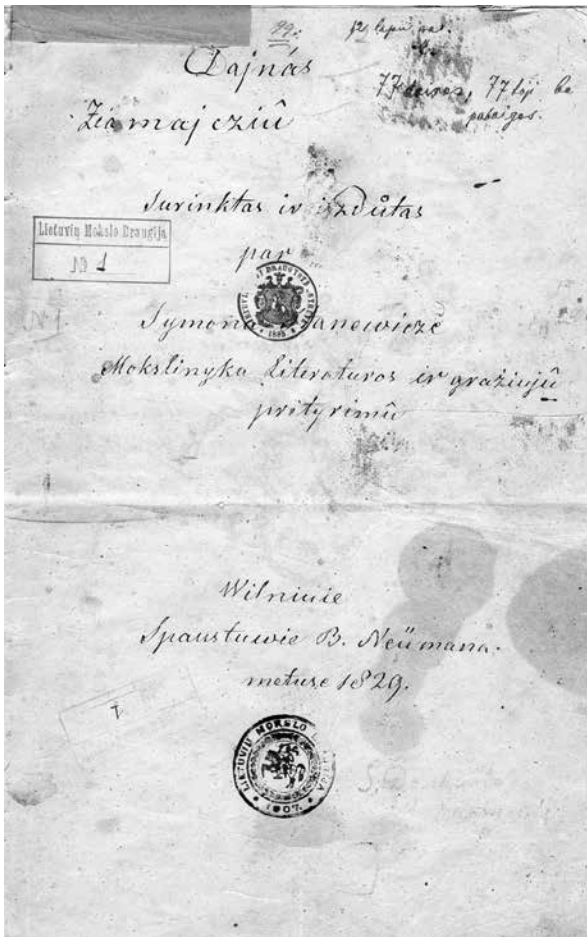 99.
Dajnás
77 dainos, 77 toji be
pabaigos.
Żiamajcziû
Surinktas ir iszdůtas
Lietuvių Mokslo Draugija
№ 1
par
1883
Symona Stanewicze
Mokslinyka Literaturos ir grażiujû
prityrimû
Wilniuie
Spaustuwie B. Neümana.
metuse 1829.
LIETUVIŲ MOKSLO DRAUGIJA
1907.